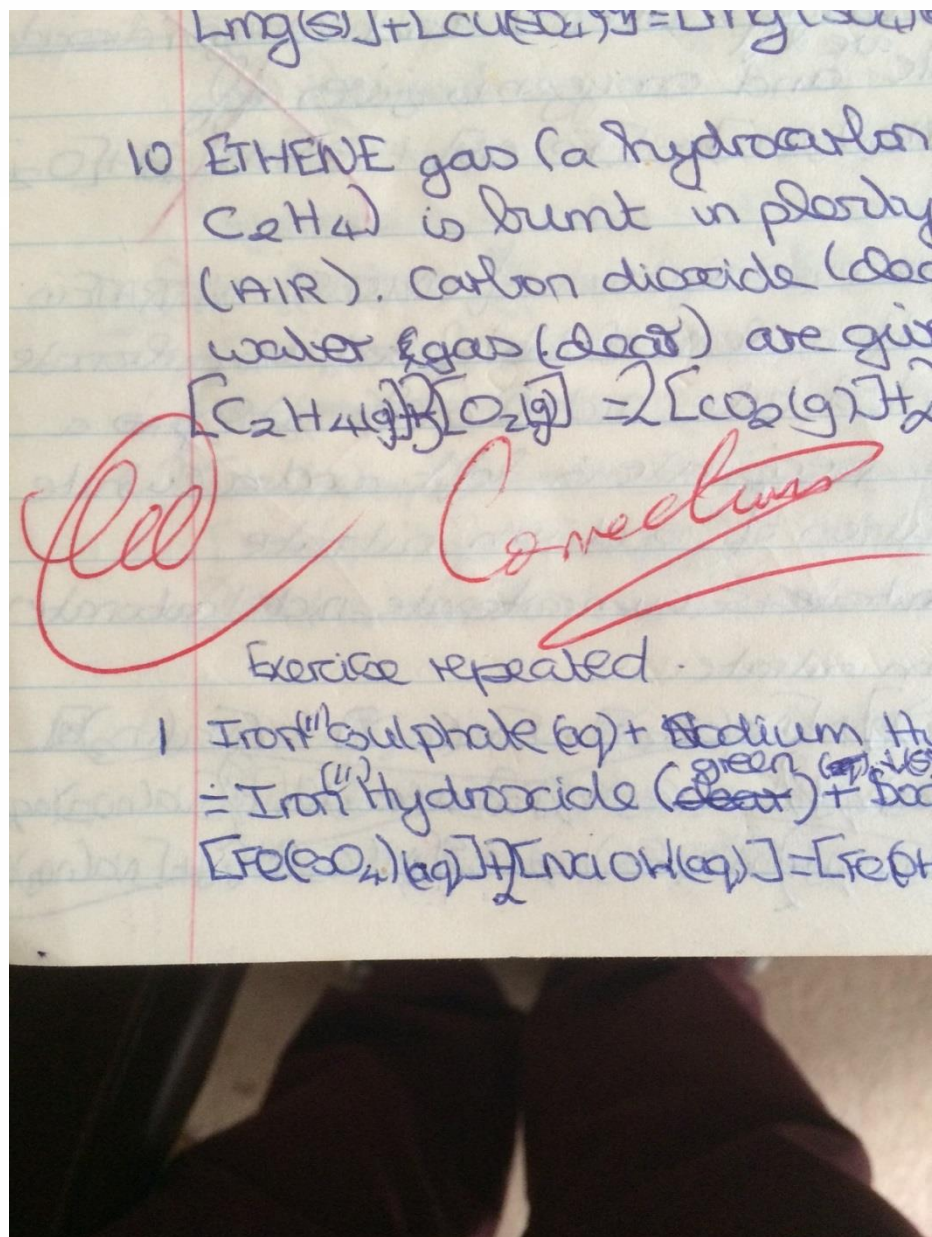 [mg(s)]+[Cu(SO4)
10 ETHENE gas (a hydrocarbon
C2H4) is burnt in plenty
(AIR). Carbon dioxide (clea
water gas (clear) are giv
[C2H4(g)]+3[O2(g)] =2[CO2(g)]+2
Corrections
Exercise repeated.
1 Iron(11) Sulphate (aq) + Sodium Hy
green
= Iron(11) Hydroxide (clear) + Sod
[Fe(SO4)(aq)]+2[NaOH(aq)]=[Fe(OH